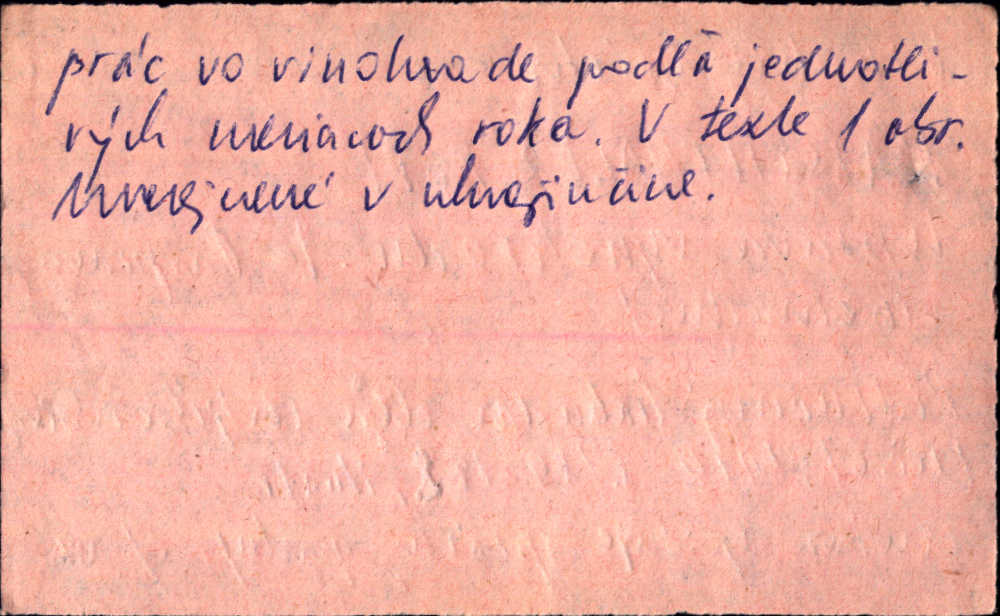 prác vo vinohrade podľa jednotli-
vých mesiacoch roka. V texte 1 obr.
Uverejnené v ukrajinčine.